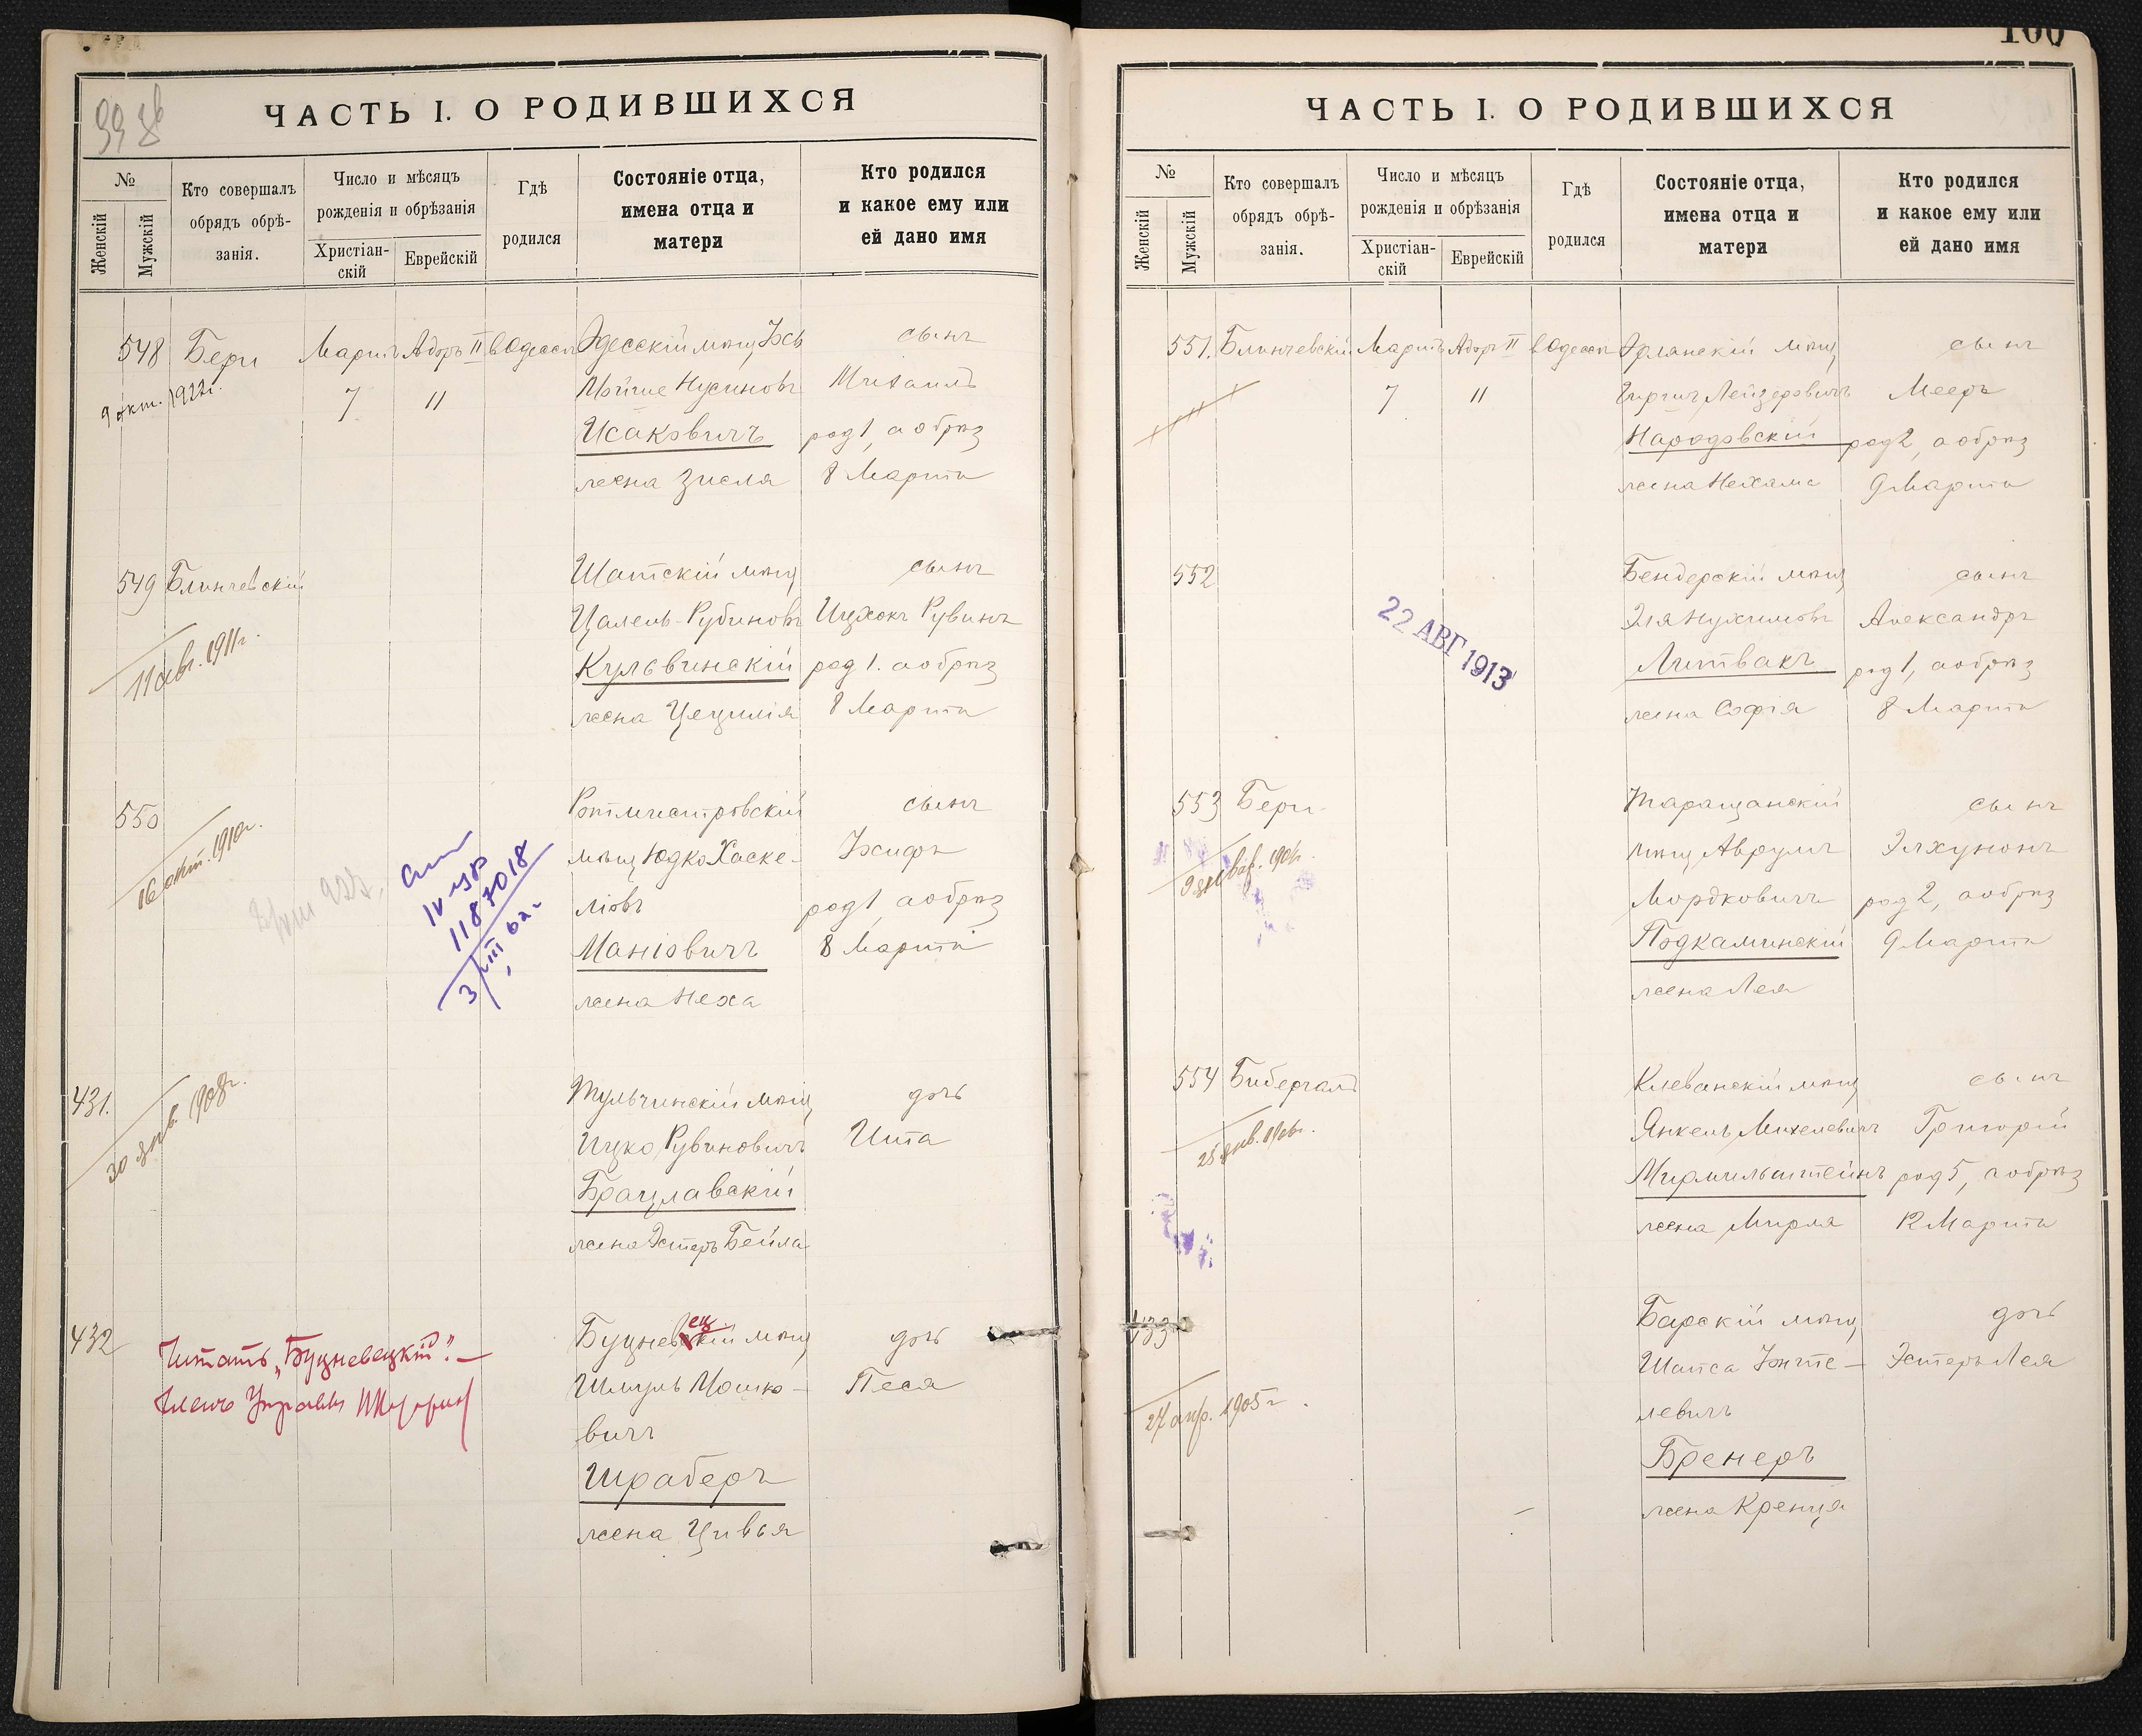 ЧАСТЬ I. О РОДИВШИХСЯ
№
Женскій
Мужскій
Кто совершалъ
обрядъ обрѣ-
занія.
Число и мѣсяцъ
рожденія и обрѣзанія
Христіан-
скій
Еврейскій
Гдѣ
родился
Состояніе отца,
имена отца и
матери
Кто родился
и какое ему или
ей дано имя
548 Бери Мартъ Адоръ II в Одессѣ Одесскій мѣщ сынъ
7 11 Мойше Нусиновъ Михаилъ
9 окт. 1922г.
Исаковичъ род 1, а обрѣз
жена Зисля 8 Марта
549 Блинчевскій Шатскій мѣщ сынъ
Цалель-Рубиновъ Ицхокъ Рувинъ
11 авг. 1911г.
Кульвинскій род 1. а обрѣз
жена Цецилія 8 Марта
550 Ротмистровскій сынъ
16 окт. 1910г.
мѣщ Юдко Хаске- Іосифъ
ліовъ род 1, а обрѣз
Маніовичъ 8 Марта
жена Неха
IV
3/VIII 62 г
431. Тульчинскій мѣщ дочь
30 янв. 1908г.
Ицко Рувиновичъ Ита
Брацлавскій
жена Эстеръ Бейла
432 Буцневскій мѣщ дочь
ец
Читать „Буцневецкій".—
Членъ Управы
Шмуль Мошко- Песя
вичъ
Шраберъ
жена Цивья
100
ЧАСТЬ I. О РОДИВШИХСЯ
№
Женскій
Мужскій
Кто совершалъ
обрядъ обрѣ-
занія.
Число и мѣсяцъ
рожденія и обрѣзанія
Христіан-
скій
Еврейскій
Гдѣ
родился
Состояніе отца,
имена отца и
матери
Кто родился
и какое ему или
ей дано имя
551. Блинчевскій Мартъ Адоръ II в Одессѣ мѣщ сынъ
7 11 Лейзеровичъ Мееръ
Народовскій род 2, а обрѣз
жена Нехама 9 Марта
552 Бендерскій мѣщ сынъ
22 АВГ 1913
Эля Нухимовъ Александръ
Литвакъ род 1, а обрѣз
жена Софія 8 Марта
553 Бери Таращанскій сынъ
мѣщ Аврумъ Элхунонъ
Мордковичъ род 2, а обрѣз
Подкаминскій 9 Марта
жена Лея
554 Бибергалъ Клеванскій мѣщ сынъ
Янкель Михелевичъ Григорій
Мирмильштейнъ род 5, а обрѣз
жена Мирля 12 Марта
433 Барскій мѣщ дочь
Шапса Эстеръ Лея
27 апр. 1905 г.
левичъ
Бренеръ
жена Кренця